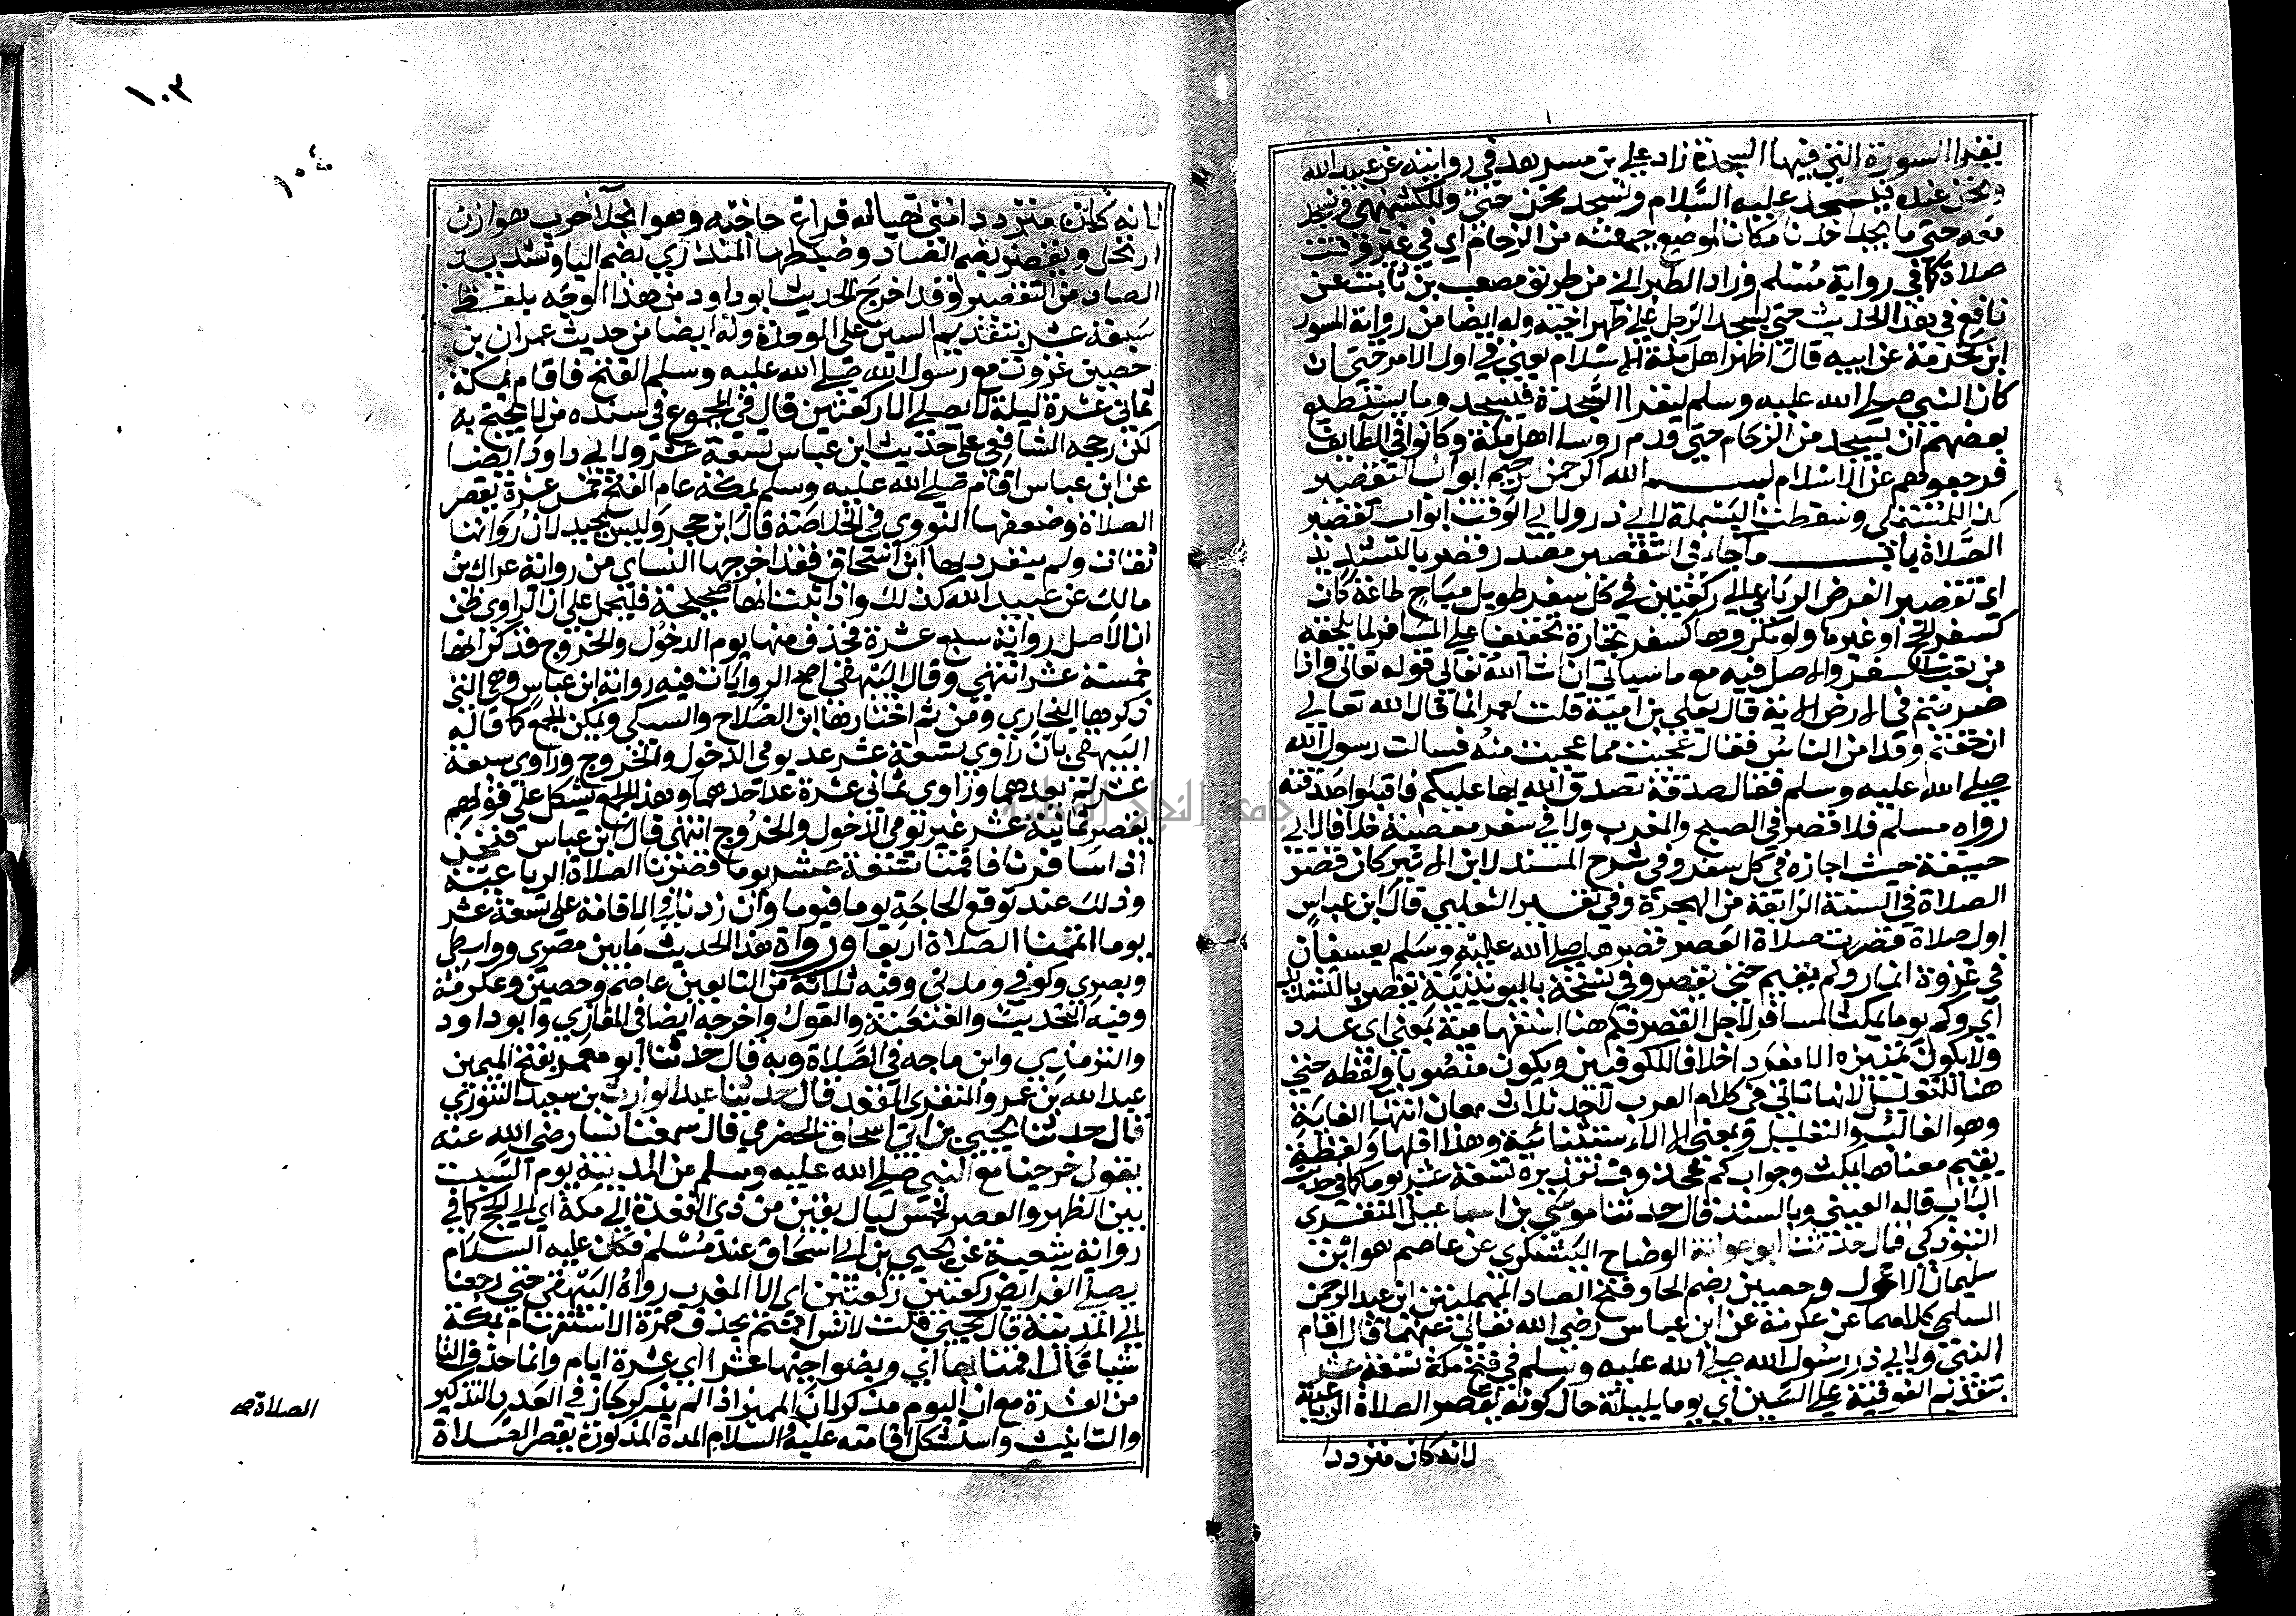 يقرا السورة التي فيها السجدة زاد علي بن مسهر في روايته عن عبيد الله
ونحن عنده فيسجد عليه السلام ونسجد نحن حتى وللكشميهني فنسجد
معه حتى ما يجد احدنا مكانا لموضع جبهته من الزحام اي في غير وقت
صلاة كما في رواية مسلم وزاد الطبراني من طريق مصعب بن ثابت عن
نافع في هذا الحديث حتى يسجد الرجل على ظهر اخيه وله ايضا من رواية المسور
ابن مخرمة عن ابيه قال اظهر اهل مكة الاسلام يعني في اول الامر حتى ان
كان النبي صلى الله عليه وسلم ليقرا السجدة فيسجد وما يستطيع
بعضهم ان يسجد من الزحام حتى قدم روسا اهل مكة وكانوا في الطايف
فرجعوهم عن الاسلام بسم الله الرحمن الرحيم ابواب التقصير
كذا للمستملي وسقطت البسملة لابي ذر ولابي الوقت ابواب تقصير
الصلاة باب ما جاء في التقصير مصدر قصر بالتشديد
اي تقصير الفرض الرباعي الى ركعتين في كل سفر طويل مباح طاعة كان
كسفر الحج او غيرها ولو مكروها كسفر تجارة تخفيفا على المسافر لما يلحقه
من تعب السفر والاصل فيه مع ما سياتي ان شا الله تعالى قوله تعالى واذا
ضربتم في الارض الاية قال يعلى بن امية قلت لعمر انما قال الله تعالى
ان خفتم وقد امن الناس فقال عجبت مما عجبت منه فسالت رسول الله
صلى الله عليه وسلم فقال صدقة تصدق الله بها عليكم فاقبلوا صدقته
رواه مسلم فلا قصر في الصبح والمغرب ولا في سفر معصية خلافا لابي
حنيفة حيث اجازه في كل سفر وفي شرح المسند لابن الاثير كان قصر
الصلاة في السنة الرابعة من الهجرة وفي تفسير الثعلبي قال ابن عباس
اول صلاة قصرت صلاة العصر قصرها صلى الله عليه وسلم بعسفان
في غزوة انمار وكم يقيم حتى يقصر وفي نسخة باليونينية يقصر بالتشديد
اي وكم يوما يمكث المسافر لاجل القصر فكم هنا استفهامية بمعنى اي عدد
ولا يكون تمييزه الا مفردا خلافا للكوفيين ويكون منصوبا ولفظه حتى
هنا للتعليل لانها تاتي في كلام العرب لاحد ثلاث معان انتها الغاية
وهو الغالب والتعليل وبمعنى الا الاستثنائية وهذا اقلها ولفظة
يقيم معناها يمكث وجواب كم محذوف تقديره تسعة عشر يوما كما في حديث
الباب قاله العيني وبالسند قال حدثنا موسى بن اسماعيل المنقري
التبوذكي قال حدثنا ابو عوانة الوضاح اليشكري عن عاصم هو ابن
سليمان الاحول وحصين بضم الحا وفتح الصاد المهملتين ابن عبد الرحمن
السلمي كلاهما عن عكرمة عن ابن عباس رضي الله تعالى عنهما قال اقام
النبي ولابي ذر رسول الله صلى الله عليه وسلم في فتح مكة تسعة عشر
بتقديم الفوقية على السين اي يوما بليلته حال كونه يقصر الصلاة الرباعية
لانه كان مترددا
١٠٣
١٠٤
لانه كان مترددا متى تهيا له فراغ حاجته وهو انجلا حرب هوازن
ارتحل ويقصر بضم الصاد وضبطها المنذري بضم اليا وتشديد
الصاد من التقصير وقد اخرج الحديث ابو داود من هذا الوجه بلفظ
سبعة عشر بتقديم السين على الموحدة وله ايضا من حديث عمران بن
حصين غزوت مع رسول الله صلى الله عليه وسلم الفتح فاقام بمكة
ثماني عشرة ليلة لا يصلي الا ركعتين قال في المجموع في سنده من لا يحتج به
لكن رجحه الشافعي على حديث ابن عباس تسعة عشر ولابي داود ايضا
عن ابن عباس اقام صلى الله عليه وسلم بمكة عام الفتح خمس عشرة يقصر
الصلاة وضعفها النووي في الخلاصة قال ابن حجر وليس بجيد لان رواتها
ثقات ولم ينفرد بها ابن اسحاق فقد اخرجها النساي من رواية عراك بن
مالك عن عبيد الله كذلك واذا ثبت انها صحيحة فليحمل على ان الراوي ظن
ان الاصل رواية سبع عشرة فحذف منها يوم الدخول والخروج فذكر انها
خمسة عشر انتهى وقال البيهقي اصح الروايات فيه رواية ابن عباس وهي التي
ذكرها البخاري ومن ثم اختارها ابن الصلاح والسبكي ويمكن الجمع كما قاله
البيهقي بان راوي تسعة عشر عد يومي الدخول والخروج وراوي سبعة
عشر لم يعدهما وراوي ثماني عشرة عد احدهما وهذا الجمع يشكل على قولهم
يقصر ثمانية عشر غير يومي الدخول والخروج انتهى قال ابن عباس فنحن
اذا سافرنا فاقمنا تسعة عشر يوما قصرنا الصلاة الرباعية
وذلك عند توقع الحاجة يوما فيوما وان زدنا في الاقامة على تسعة عشر
يوما اتممنا الصلاة اربعا ورواة هذا الحديث ما بين مصري وواسطي
وبصري وكوفي ومدني وفيه ثلاثة من التابعين عاصم وحصين وعكرمة
وفيه التحديث والعنعنة والقول واخرجه ايضا في المغازي وابو داود
والترمذي وابن ماجه في الصلاة وبه قال حدثنا ابو معمر بفتح الميمين
عبد الله بن عمرو المنقري المقعد قال حدثنا عبد الوارث بن سعيد التنوري
قال حدثنا يحيى بن ابي اسحاق الحضرمي قال سمعت انسا رضي الله عنه
يقول خرجنا مع النبي صلى الله عليه وسلم من المدينة يوم السبت
بين الظهر والعصر لخمس ليال بقين من ذي القعدة الى مكة اي الى الحج كما في
رواية شعبة عن يحيى بن ابي اسحاق عند مسلم فكان عليه السلام
يصلي الفرايض ركعتين ركعتين اي الا المغرب رواه البيهقي حتى رجعنا
الى المدينة قال يحيى قلت لانس اقمتم بحذف همزة الاستفهام بمكة
شيا قال اقمنا بها اي وبضواحيها عشرا اي عشرة ايام وانما حذف التا
من العشرة مع ان اليوم مذكر لان المميز اذا لم يذكر جاز في العدد التذكير
والتانيث واستشكل اقامته عليه السلام المدة المذكورة يقصر الصلاة
الصلاة
جامعة النجاح الوطنية